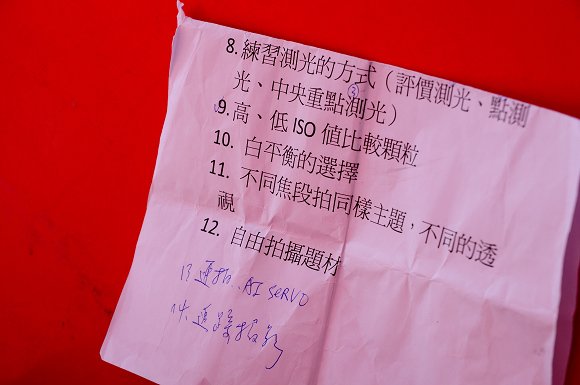 8. 練習測光的方式（評價測光、點測
光、中央重點測光）
③
9. 高、低 ISO 值比較顆粒
10. 白平衡的選擇
11. 不同焦段拍同樣主題，不同的透
視
12. 自由拍攝題材
13 連拍、AI SERVO
14. 追蹤攝影